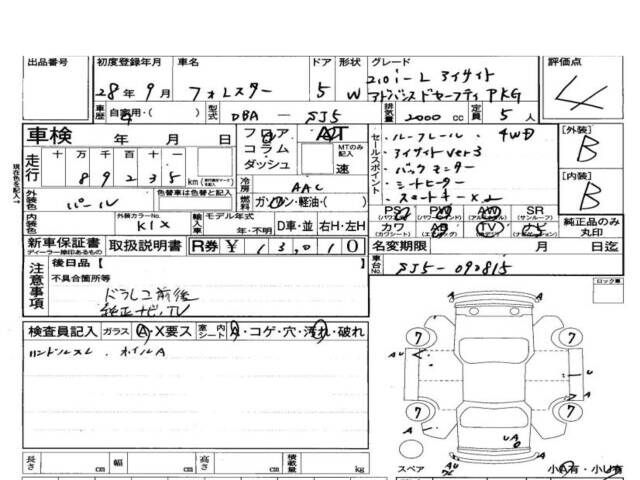 出品番号 初度登録年月 車名 ドア 形状 グレード 評価点
28年 9月 フォレスター 5 W 2.0i-L アイサイト 4
アドバンスドセーフティPKG
車歴 自家用・( ) 型式 DBA - SJ5 排気量 2000 cc 定員 5 人
車検 年 月 日
フロア AT
コラム MTのみ記入
ダッシュ 速
セールスポイント
・ルーフレール ・4WD
・アイサイトver3
・バックモニター
・シートヒーター
・スマートキー×2
[外装] B
[内装] B
走行 十万千百十一
89235 km
冷房 AAC
燃料 ガソリン・軽油・( )
外装色 パール 色替車は色替色名
内装色 外装カラーNo. K1X 輸入車 モデル年式 年・不明 D車・並 右H・左H
PS PW AW SR
(パワステ) (パワーウィンド) (アルミホイル) (サンルーフ)
カワ AB TV ナビ
(カワシート) (エアバック) (テレビ) (ナビゲーション)
純正品のみ丸印
新車保証書 取扱説明書 R券 ¥ 13,010
ディーラー捺印あるもの
名変期限 月 日迄
車台No. SJ5-090815
注意事項
後日品[ ]
不具合箇所等
ドラレコ前後
純正ナビ、TV
ロック車
検査員記入 ガラス A・X要ス 室内シート A・コゲ・穴・汚れ・破れ
ハンドルスレ ・ホイルA
A
7 7
A U
U
A A
7 7
U A
A U
スペア 小A有・小U有
長さ cm 幅 cm 高さ cm 積載量 kg
現在色を記入